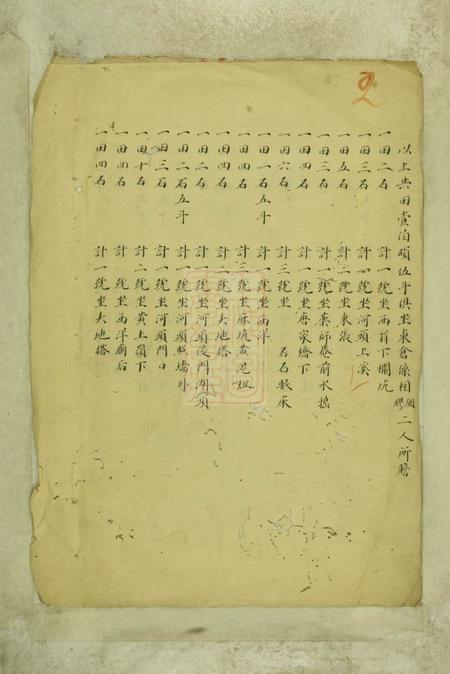 以上共田壹伯碩伍斗俱坐東倉係相 二人所
一田二石 計一號坐西翁下爛坑
一田三石 計四號坐河頭上溪
一田五石 計二號坐東張
一田三石 計一號坐藥師菴前水
一田四石 計一號坐唐家橋下
一田六石 計三號坐 石
一田一石五斗 計一號坐西洋
一田四石 計二號坐麻坑黃泥
一田四石 計二號坐大地塔
一田二石 計一號坐河頭後門湖頭
一田二石五斗 計一號坐河頭照墻外
一田三石 計一號坐河頭門口
一田十石 計二號坐黃土嶺下
一田四石 計一號坐西洋廟后
一田四石 計一號坐大地塔